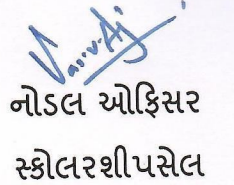 નોડલ ઓફિસર
સ્કોલરશીપસેલ